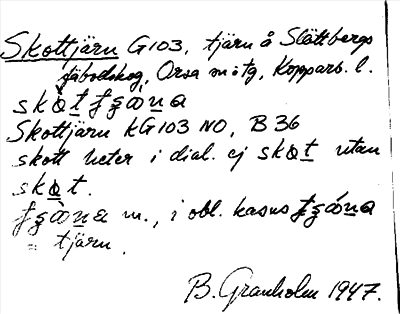 Skottjärn G103, tjärn å Slättbergs
fäbodskog, Orsa m.tg, Kopparb. l.
Skottjärn kG103 NO, B36
skott heter i dial. ej skọt utan
skọt.
m., i obl. kasus
= tjärn.
B. Granholm 1947.